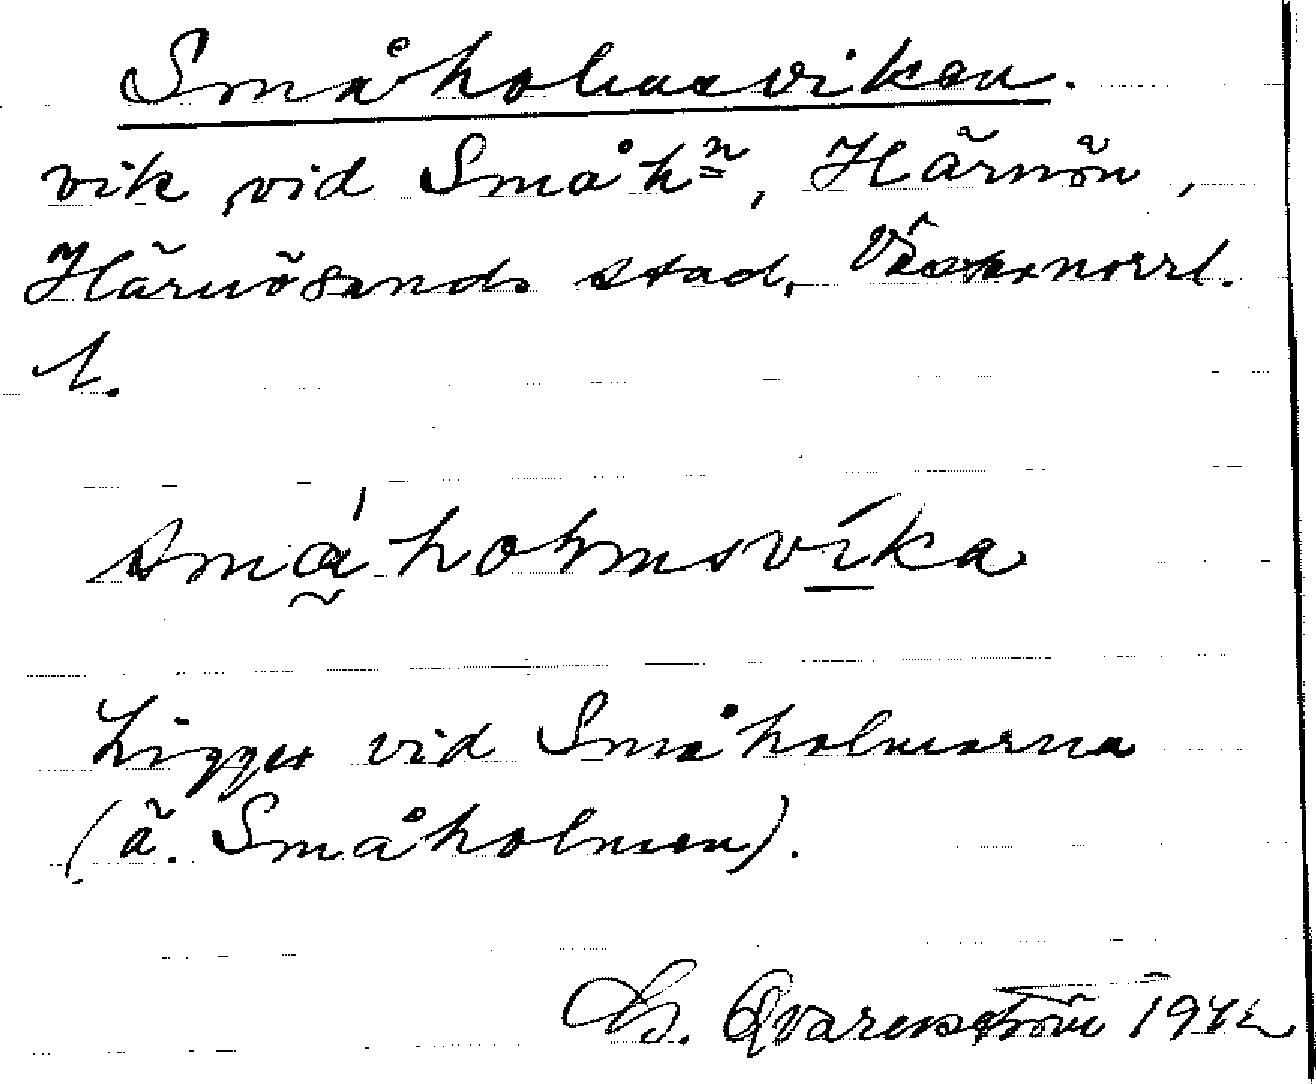 Småholmsviken.
vik vid Småhn, Härnön,
Härnösands stad, Västernorrl.
l.
smǻholmsvíka
Ligger vid Småholmarna
(ä. Småholmen).
G. Qvarnström 1942